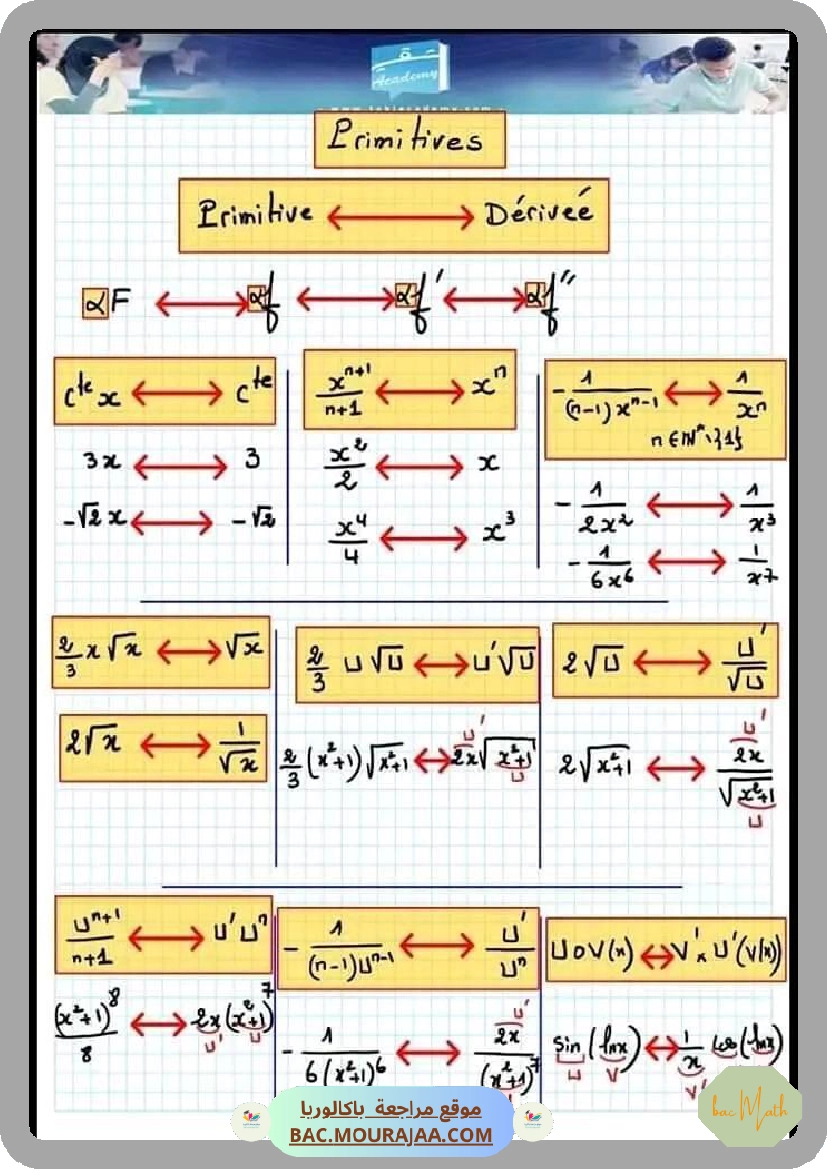 Academy
Primitives
Primitive ⟷ Dériveé
αF ⟷ αf ⟷ αf' ⟷ αf''
c^te x ⟷ c^te
3x ⟷ 3
-√2 x ⟷ -√2
x^(n+1)/(n+1) ⟷ x^n
x²/2 ⟷ x
x⁴/4 ⟷ x³
-1/((n-1)x^(n-1)) ⟷ 1/x^n
n ∈ ℕ*\{1}
-1/(2x²) ⟷ 1/x³
-1/(6x⁶) ⟷ 1/x⁷
2/3 x√x ⟷ √x
2√x ⟷ 1/√x
2/3 U√U ⟷ U'√U
2/3 (x²+1)√(x²+1) ⟷ 2x√(x²+1)
U'
U
2√U ⟷ U'/√U
2√(x²+1) ⟷ 2x/√(x²+1)
U'
U
U^(n+1)/(n+1) ⟷ U'U^n
(x²+1)⁸/8 ⟷ 2x(x²+1)⁷
U' U
-1/((n-1)U^(n-1)) ⟷ U'/U^n
-1/(6(x²+1)⁶) ⟷ 2x/(x²+1)⁷
U'
UoV(x) ⟷ V'×U'(V(x))
sin(lnx) ⟷ 1/x cos(lnx)
U V V'
موقع مراجعة باكالوريا
BAC.MOURAJAA.COM
bac Math